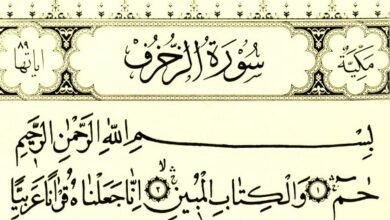 مكية سُورَةُ الزُّخْرُفِ اٰيَاتُهَا ٨٩
بِسْمِ اللّٰهِ الرَّحْمٰنِ الرَّحِيمِ
حٰمٓ ﴿١﴾ وَالْكِتَابِ الْمُبِينِ ﴿٢﴾ اِنَّا جَعَلْنَاهُ قُرْاٰنًا عَرَبِيًّا